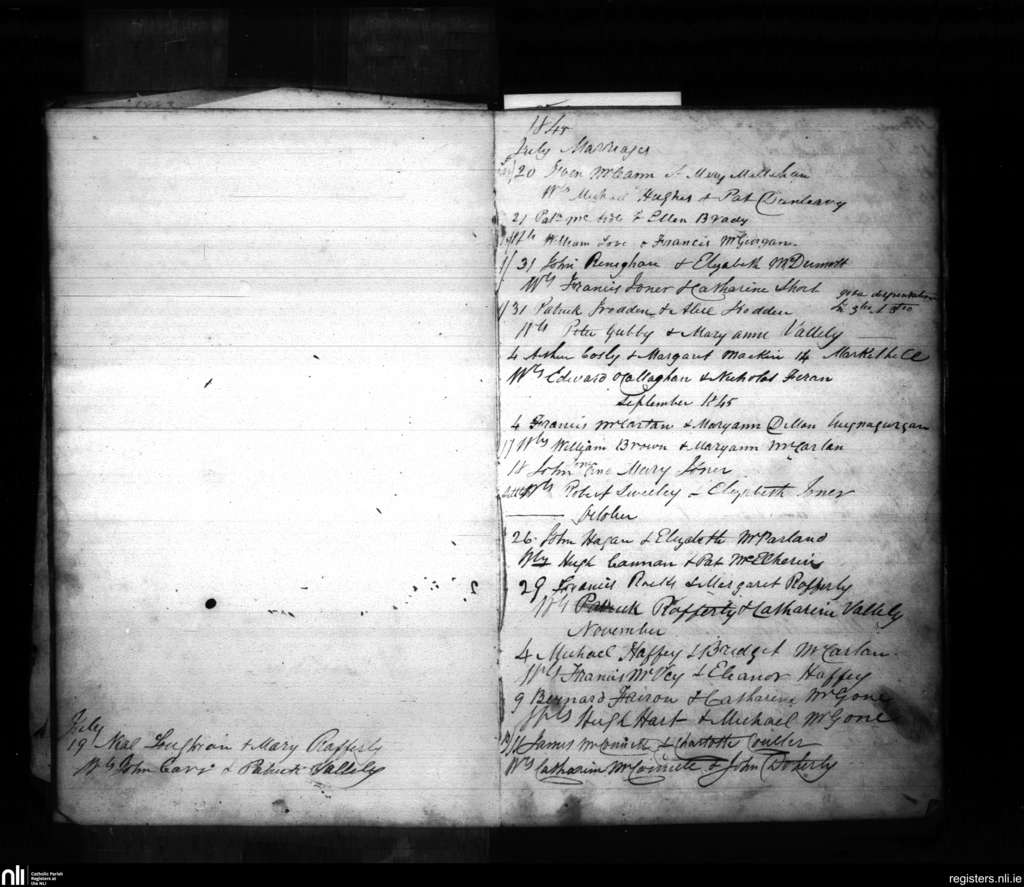 July
19 Neal Loughran & Mary Rafferty
Wts John Carr & Patrick Vallely
1845
July Marriages
20 Owen McCann & Mary Mallahan
Wts Michael Hughes & Pat Dunleavy
21 Patk & Ellen Brady
Wts William Love & Francis McGeorgan
31 John Reneghan & Elizabeth McDermott
Wts Francis Joner & Catharine Short
31 Patrick & Hodden
Wts Peter Gubby & Mary anne Vallely
4 Arthur Cosly & Margaret Mackin 14 Markethill
Wts Edward O'Callaghan & Nicholas Feran
September 1845
4 Francis McCartan & Maryann Dillon
17 Wts William Brown & Maryann McCartan
18 John Mary Joner
Wts Robert Sweeley & Elizabeth Joner
October
26 John Hagan & Elizabeth McParland
Wts Hugh Cannan & Pat McElherin
29 Francis & Margaret Rafferty
Wts Patrick Rafferty & Catharine Vallely
November
4 Michael Haffey & Bridget McCartan
Wts Francis McVey & Eleanor Haffey
9 Bernard & Catharine McGone
Wts Hugh Hart & Michael McGone
James McConnell & Charlotte Coulter
Wts Catharine McConnell & John Doherty
nli
Catholic Parish
Registers at
the NLI
registers.nli.ie